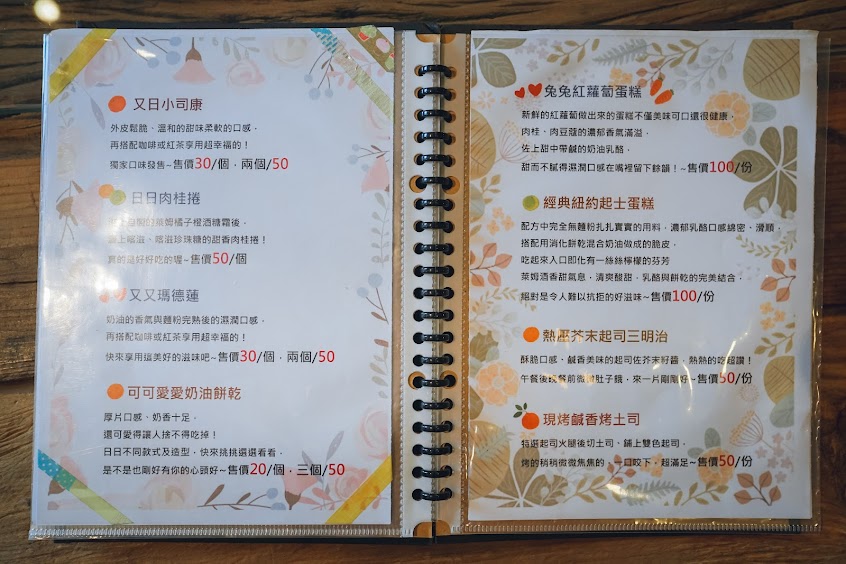 又日小司康
外皮鬆脆、溫和的甜味柔軟的口感，
再搭配咖啡或紅茶享用超幸福的！
獨家口味發售~售價30/個，兩個/50
日日肉桂捲
萊姆橘子橙酒糖霜後，
上喀滋、喀滋珍珠糖的甜香肉桂捲！
真的是好好吃的喔~售價50/個
又又瑪德蓮
奶油的香氣與麵粉完熟後的濕潤口感，
再搭配咖啡或紅茶享用超幸福的！
快來享用這美好的滋味吧~售價30/個，兩個/50
可可愛愛奶油餅乾
厚片口感、奶香十足，
還可愛得讓人捨不得吃掉！
日日不同款式及造型，快來挑挑選選看看，
是不是也剛好有你的心頭好~售價20/個，三個/50
兔兔紅蘿蔔蛋糕
新鮮的紅蘿蔔做出來的蛋糕不僅美味可口還很健康，
肉桂、肉豆蔻的濃郁香氣滿溢，
佐上甜中帶鹹的奶油乳酪，
甜而不膩得濕潤口感在嘴裡留下餘韻！~售價100/份
經典紐約起士蛋糕
配方中完全無麵粉扎扎實實的用料，濃郁乳酪口感綿密、滑順，
搭配用消化餅乾混合奶油做成的脆皮，
吃起來入口即化有一絲絲檸檬的芬芳
萊姆酒香甜氣息，清爽酸甜，乳酪與餅乾的完美結合，
絕對是令人難以抗拒的好滋味~售價100/份
熱壓芥末起司三明治
酥脆口感、鹹香美味的起司佐芥末籽醬，熱熱的吃超讚！
午餐後晚餐前微微肚子餓，來一片剛剛好~售價50/份
現烤鹹香烤土司
特選起司火腿後切土司、鋪上雙色起司，
烤的稍稍微微焦焦的，一口咬下，超滿足~售價50/份